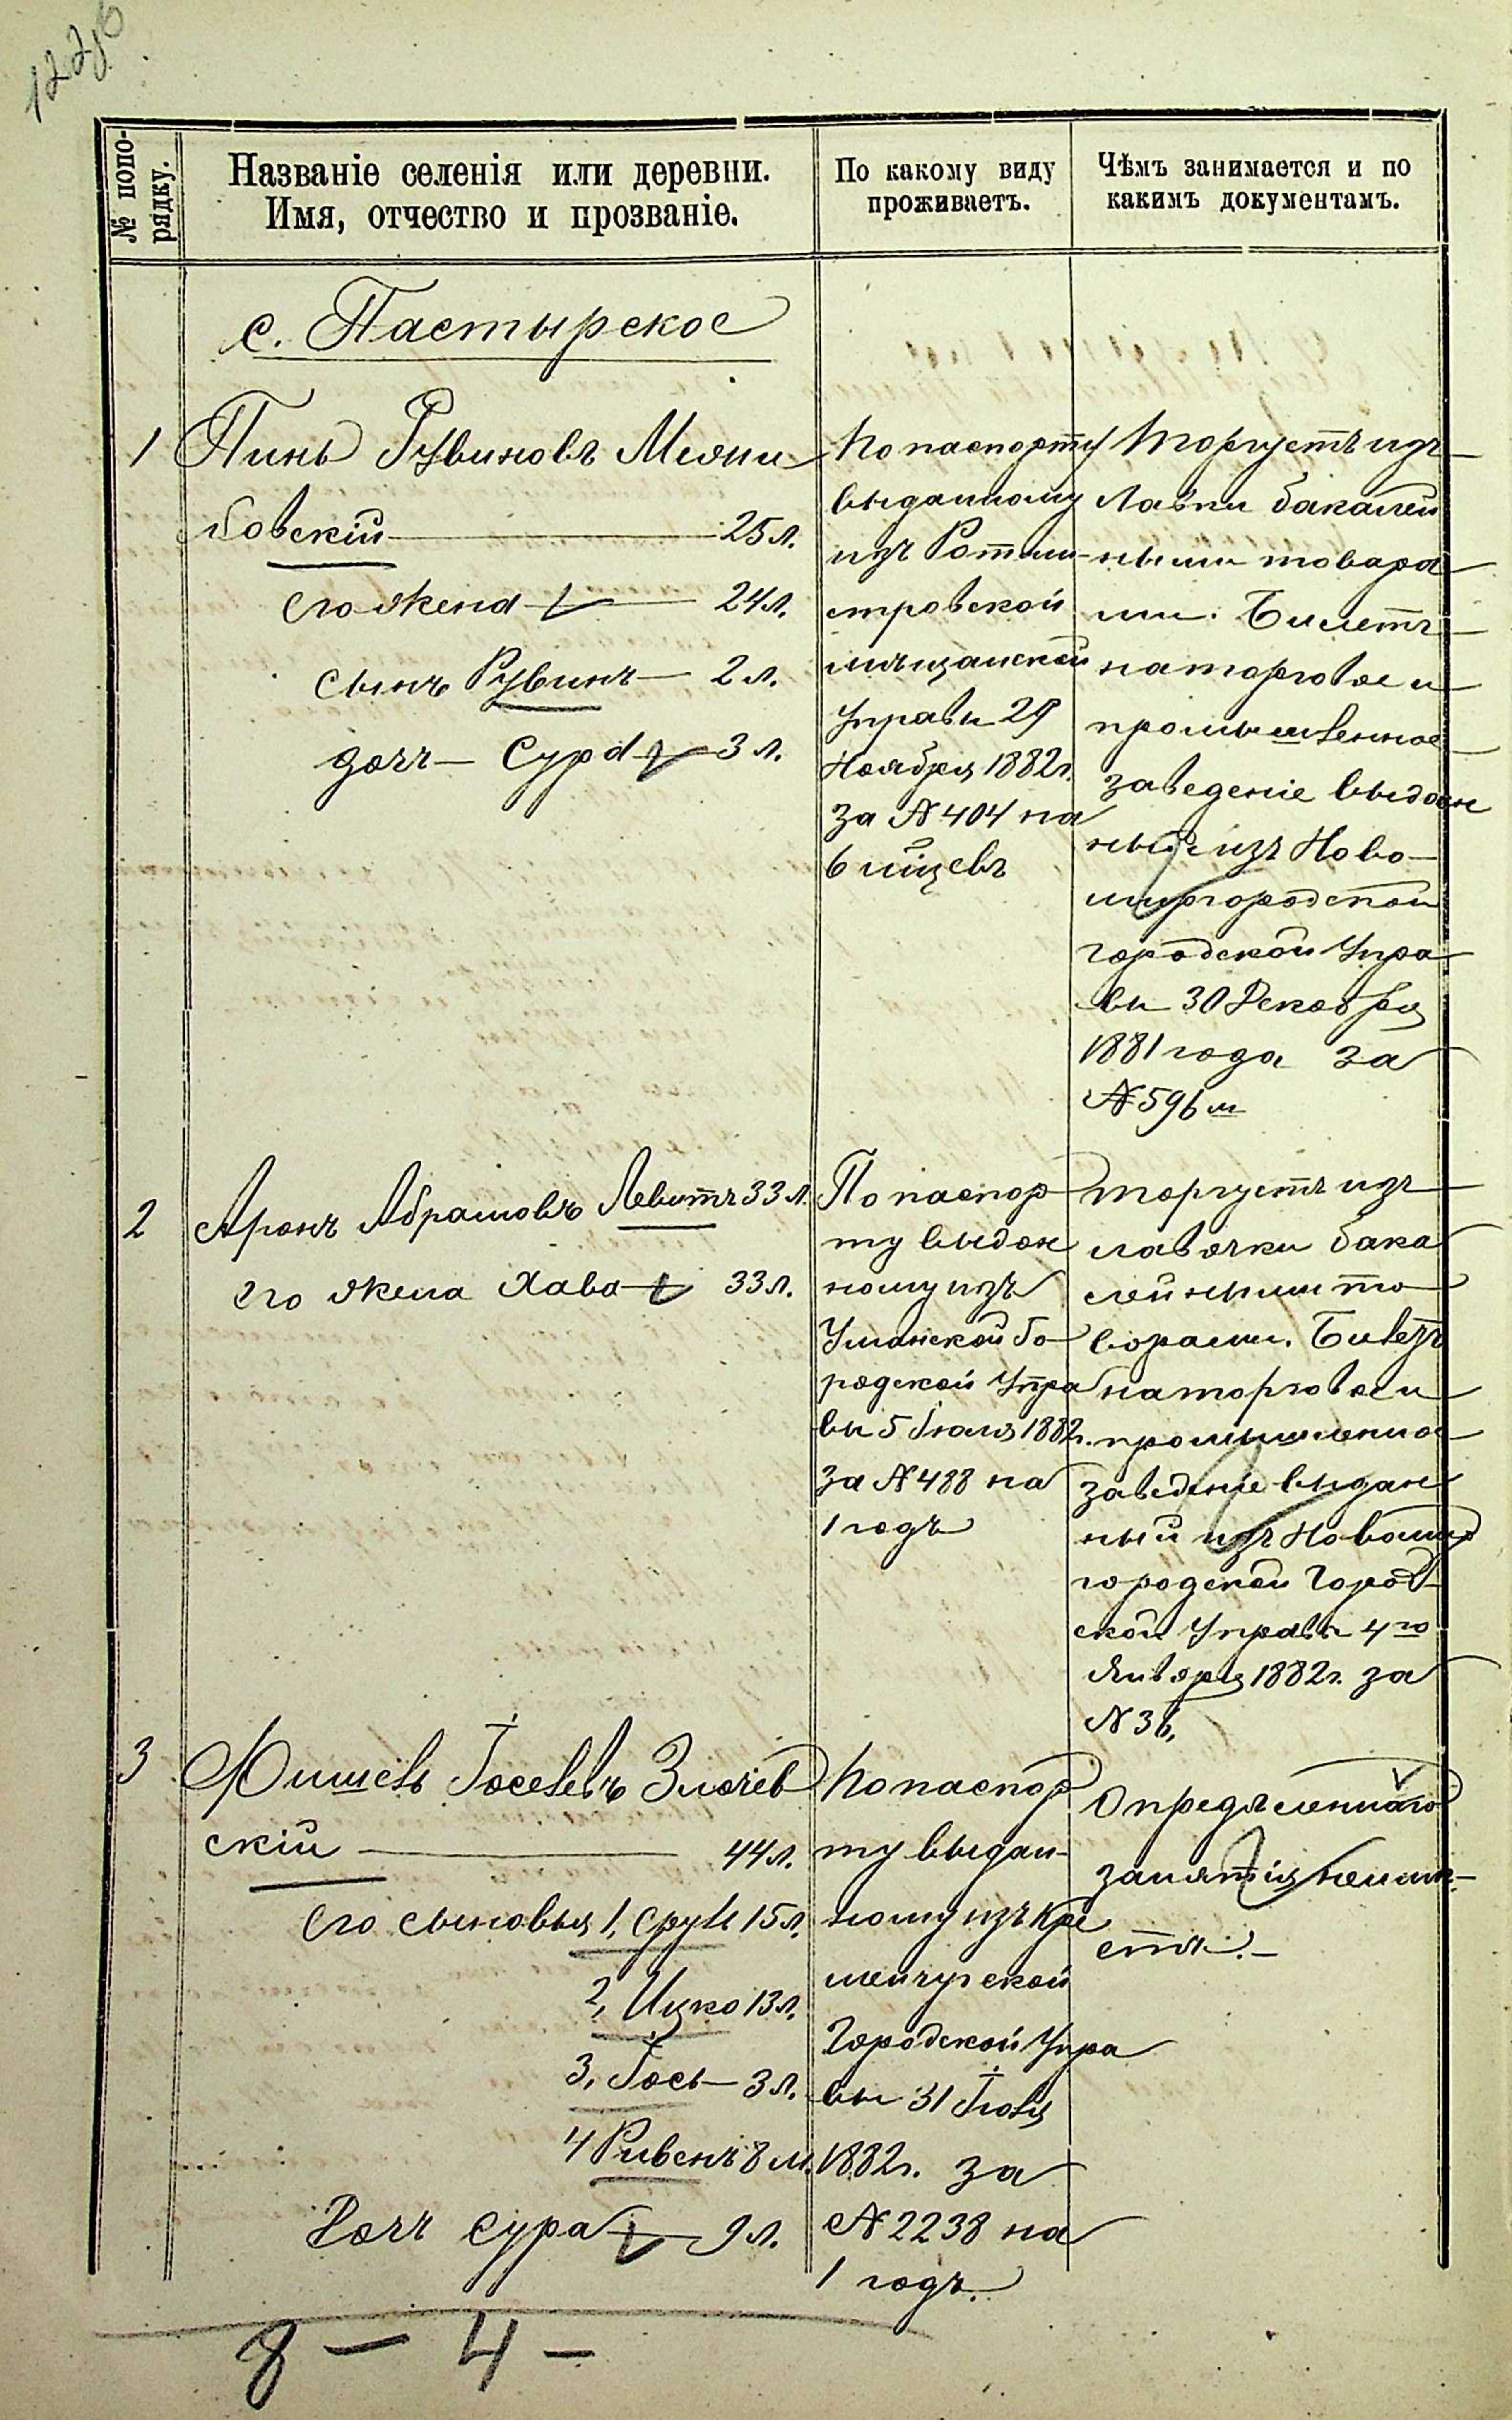 № попо-
рядку.
Названіе селенія или деревни.
Имя, отчество и прозваніе.
По какому виду
проживаетъ.
Чѣмъ занимается и по
какимъ документамъ.
с. Пастырское
1
Пинь Рувиновъ
бовскій 25 л.
его жена 24 л.
сынъ Рувинъ 2 л.
дочь Сура 3 л.
По паспорту
выданному
изъ Ротми-
стровской
мѣщанской
Управы 29
Ноября 1882 г.
за № 404 на
6 мѣсцевъ
Торгуетъ изъ
лавки бакалей
ными товара
ми. Билетъ
на торговое и
промышленное
заведеніе выдан
ный изъ Ново-
миргородской
Городской Упра
вы 30 Декабря
1881 года за
№ 596 м
2
Аронъ Абрамовъ Левитъ 33 л.
его жена Хава 33 л.
По паспор
ту выдан
ному изъ
Уманской Го
родской Упра
вы 5 Іюля 1882 г.
за № 488 на
1 годъ
торгуетъ изъ
лавочки бака
лейными то
варами. Билетъ
на торговое и
промышленное
заведеніе выдан
ный изъ Новомир
городской Город-
ской Управы 4го
Января 1882 г. за
№ 36.
3
Фишель Іоселевъ Злочев
скій 44 л.
его сыновья 1, Сруль 15 л.
2, Ицко 13 л.
3, Іось 3 л.
4 Ривенъ 8 м.
Дочь Сура 9 л.
По паспор
ту выдан-
ному изъ Кре
менчугской
Городской Упра
вы 31 Іюля
1882 г. за
№ 2238 на
1 годъ.
Опредѣленнаго
занятія неимѣ-
етъ.-
8 - 4 -